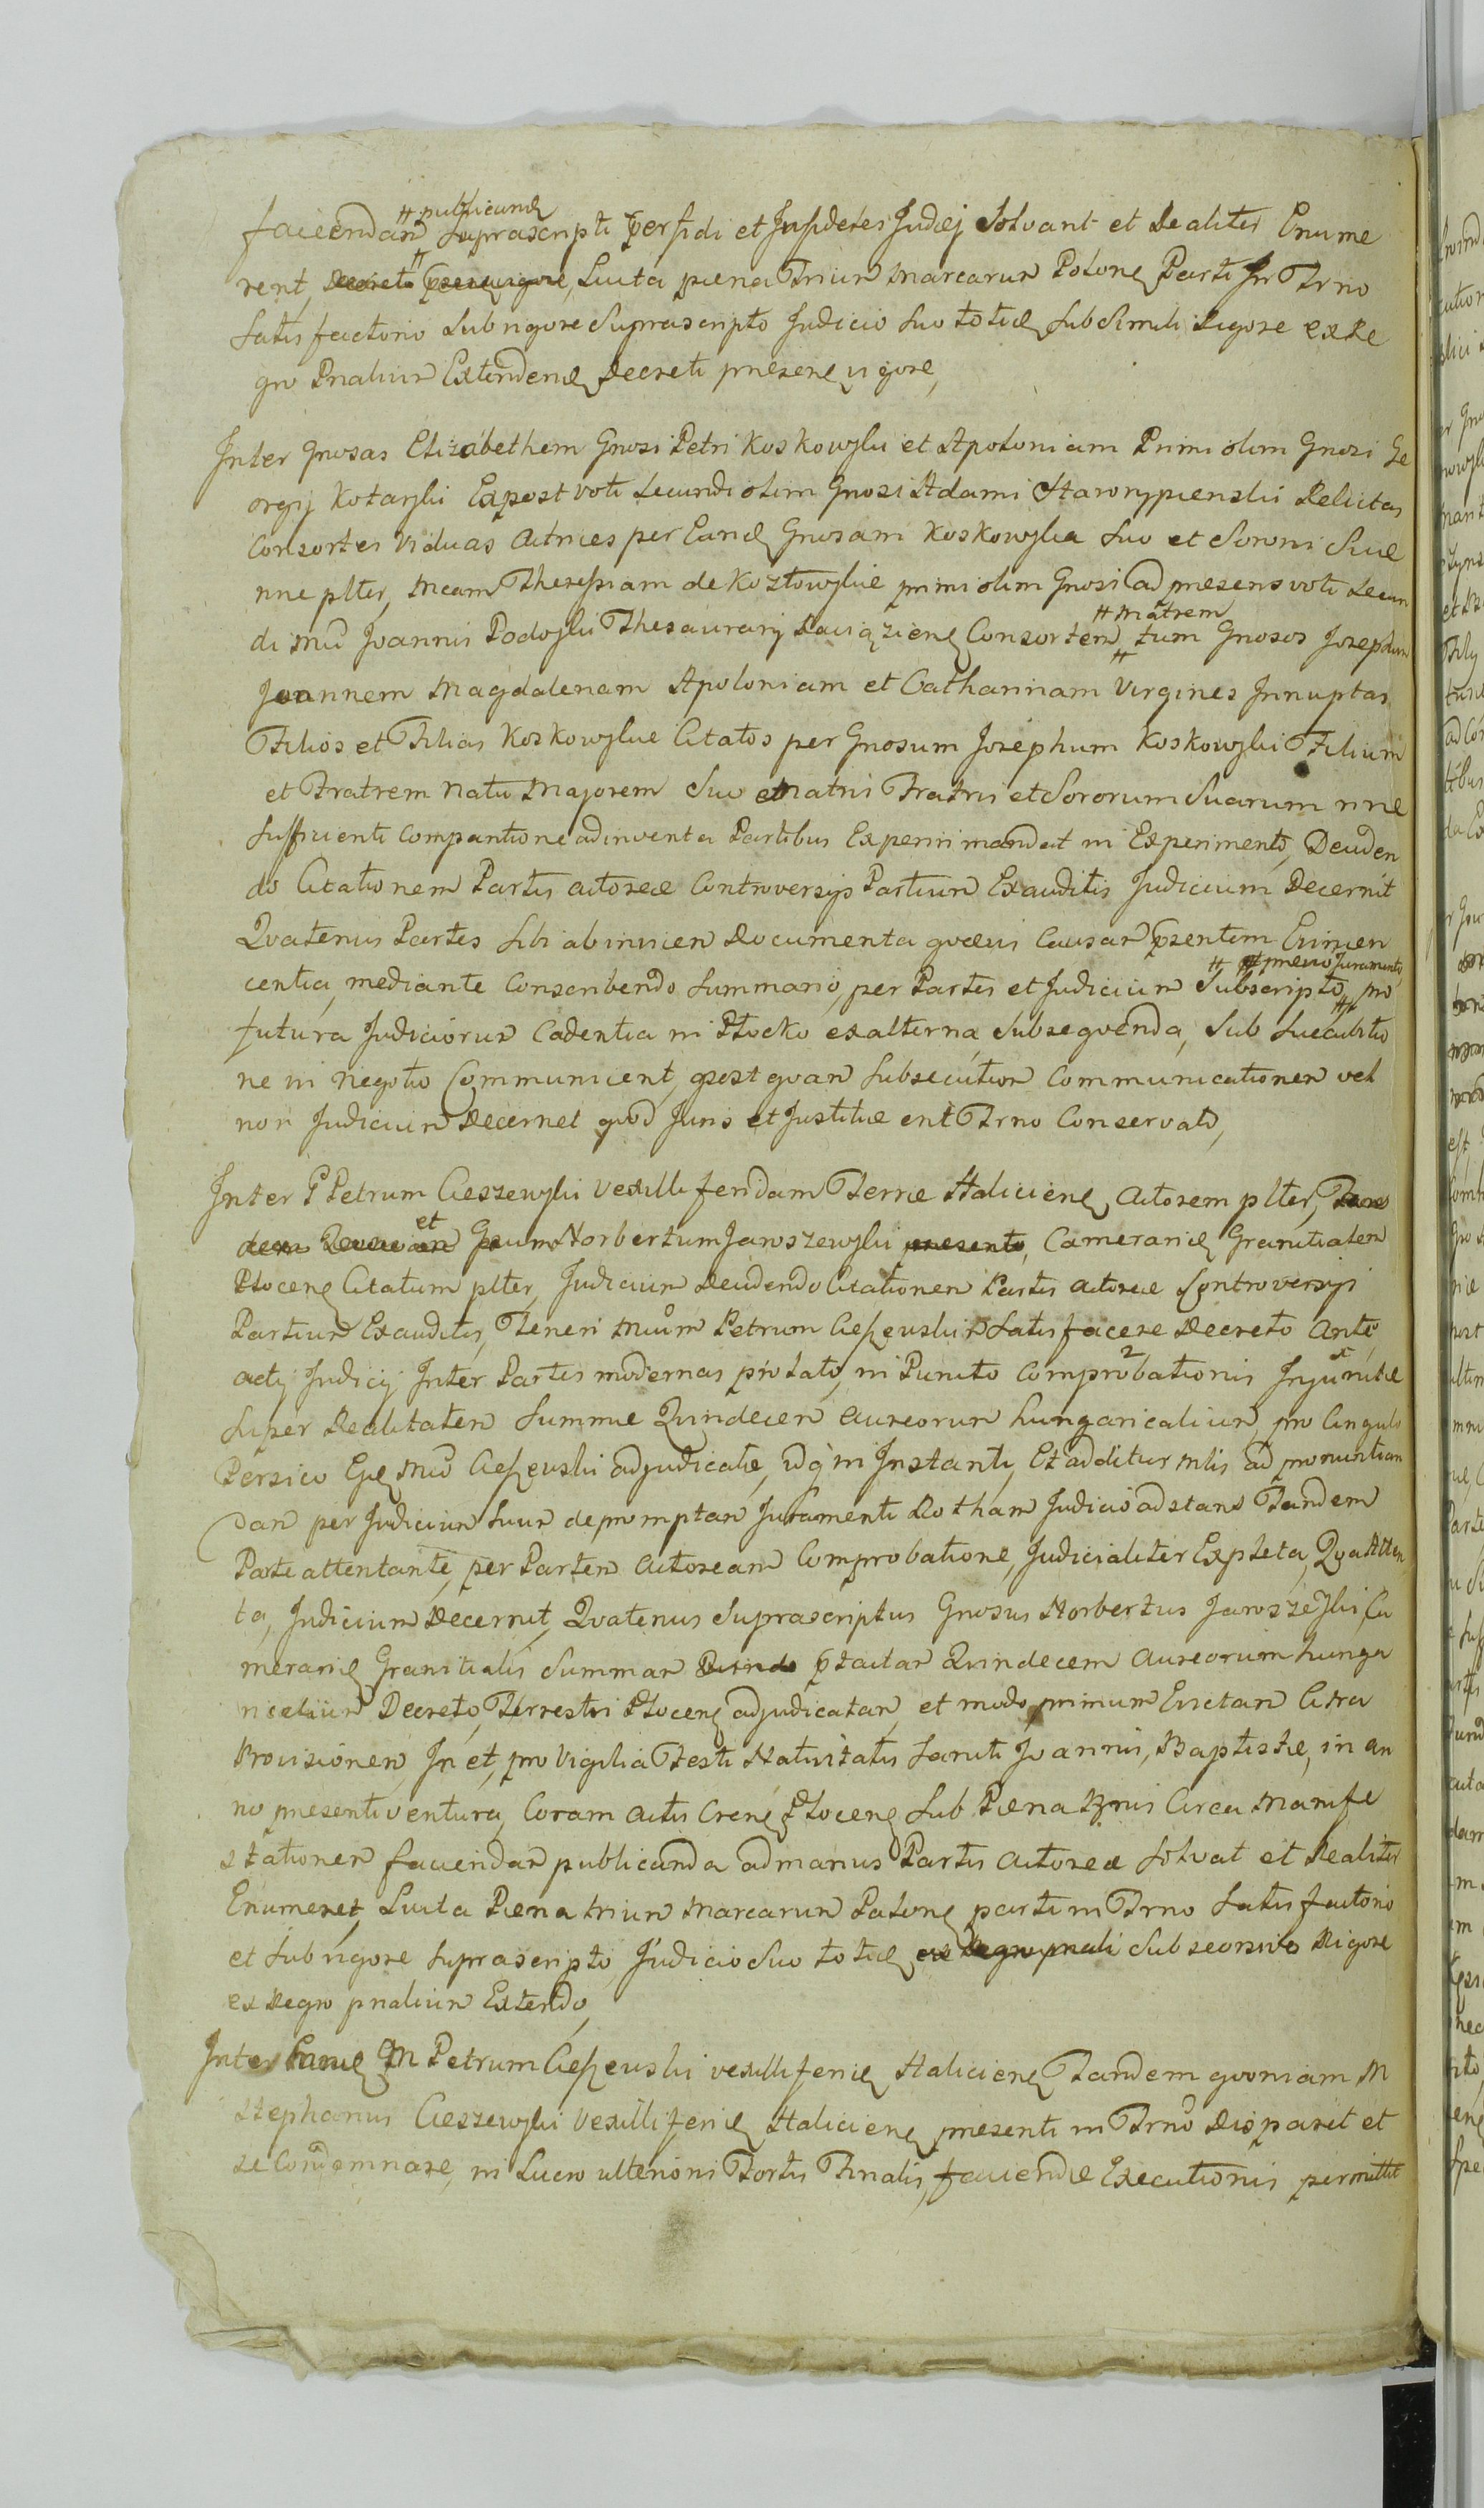 faciendam # publicand Suprascripti Perfidi et Infideles Judej Solvant et Realiter Enume
rent, Luita pæna Trium Marcarum Polone Parti In Trno
Satisfactorio Sub rigore Suprascripto Judicio Suo toties Sub Simili Rigore ex Re
gro Pnalium Extendend Decreti præsene vigore,
Inter Gnosas Elizabetham Gnosi Petri Koskowski et Apoloniam Primi olim Gnosi Ge
orgij Kotarski Expost voti Secundi olim Gnosi Adami StaroryPienski Relictas
Consortes Viduas Actrices per Eand Gnosam Koskowska Suo et Sororis Suæ
nne plter, Mcam Theressiam de Kozłowskie primi olim Gnosi ad præsens voti Secun
di Mci Joannis Podoski Thesaurarij Raciążiene Consortem # matrem tum Gnosos Josephum
Joannem Magdalenam Apoloniam et Catharinam Virgines Innuptas
Filios et Filias Koskowskie Citatos per Gnosum Josephum Koskowski Filium
et Fratrem Natu Majorem Suo et Matris Fratris et Sororum Suarum nne
Sufficienti Comparitione adinventa Partibus Experiri mandat ni Experimento, Decidendo
do Citationem Partis actoreæ Controversijs Partium Exauditis Judicium Decernit
Qvatenus Partes Sibi abinvicem Documenta qvævis Causam Pzentem Evincen
centia, mediante Conscribendo Summario, per Partes et Judicium Subscripto # prævio Juramento, pro
futura Judiciorum Cadentia ni Płocko exalterna Subseqvenda, Sub Succubitio
ne in Negotio Communicent, post qvam Subsecutam Communicationem vel
non Judicium Decernet qvod Juris et Justitiæ erit Trno Conservato,
Inter P Petrum Cieszewski Vexilliferidam Terræ Haliciene Actorem plter,
et Gnum Norbertum Jaroszewski Camerarid Granitialem
Płocene Citatum plter, Judicium Decidendo Citationem Partis actoreæ Controversijs
Partium Exauditis, Teneri Mcum Petrum Cieszewski Satisfacere Decreto Ante
acti Judicij Inter Partes modernas prolato, ni Puncto Comprobationis Injunctæ
Super Realitatem Summæ Qvindecem Aureorum Hungaricalium, pro Cingulo
Persico Ejus Mco Cieszewski adjudicatæ, idq in Instanti, Et additur Mlis ad pronuntian
dam per Judicium Suum depromptam Juramenti Rotham Judicio adstans Tandem
Parte attentante, per Partem Actoream Comprobatione, Judicialiter Expleta, Qva Atten
ta, Judicium Decernit, Qvatenus Suprascriptus Gnosus Norbertus Jaroszewski, Ca
merarid Granitialis Summam Ptactam Qvindecem Aureorum Hunga
ricalium Decreto, Terrestri Płocene adjudicatam, et modo primum Evictam Citra
Provisionem, In et, pro Vigilia Festi Nativitatis Sancti Joannis, Baptistæ, in an
no præsenti ventura, Coram Actis Crene Płocene Sub Pæna Bnis Circa Manife
stationem faciendam publicanda ad manus Partis Actoreæ Solvat et Realiter
Enumeret, Luita Pæna trium Marcarum Polone parti in Trno Satisfactorio
et Sub rigore Suprascripto, Judicio Suo toties Sub seorsivo Rigore
ex Regro pnalium Extendo,
Inter Eund M Petrum Cieszewski vexilliferid Haliciene Tandem qvoniam M
Stephanus Cieszewski Vexilliferid Haliciene præsenti in Trno Disparet et
se Condemnare, in Lucro ulterioris Fortis Finalis, faciendæ Executionis permittit